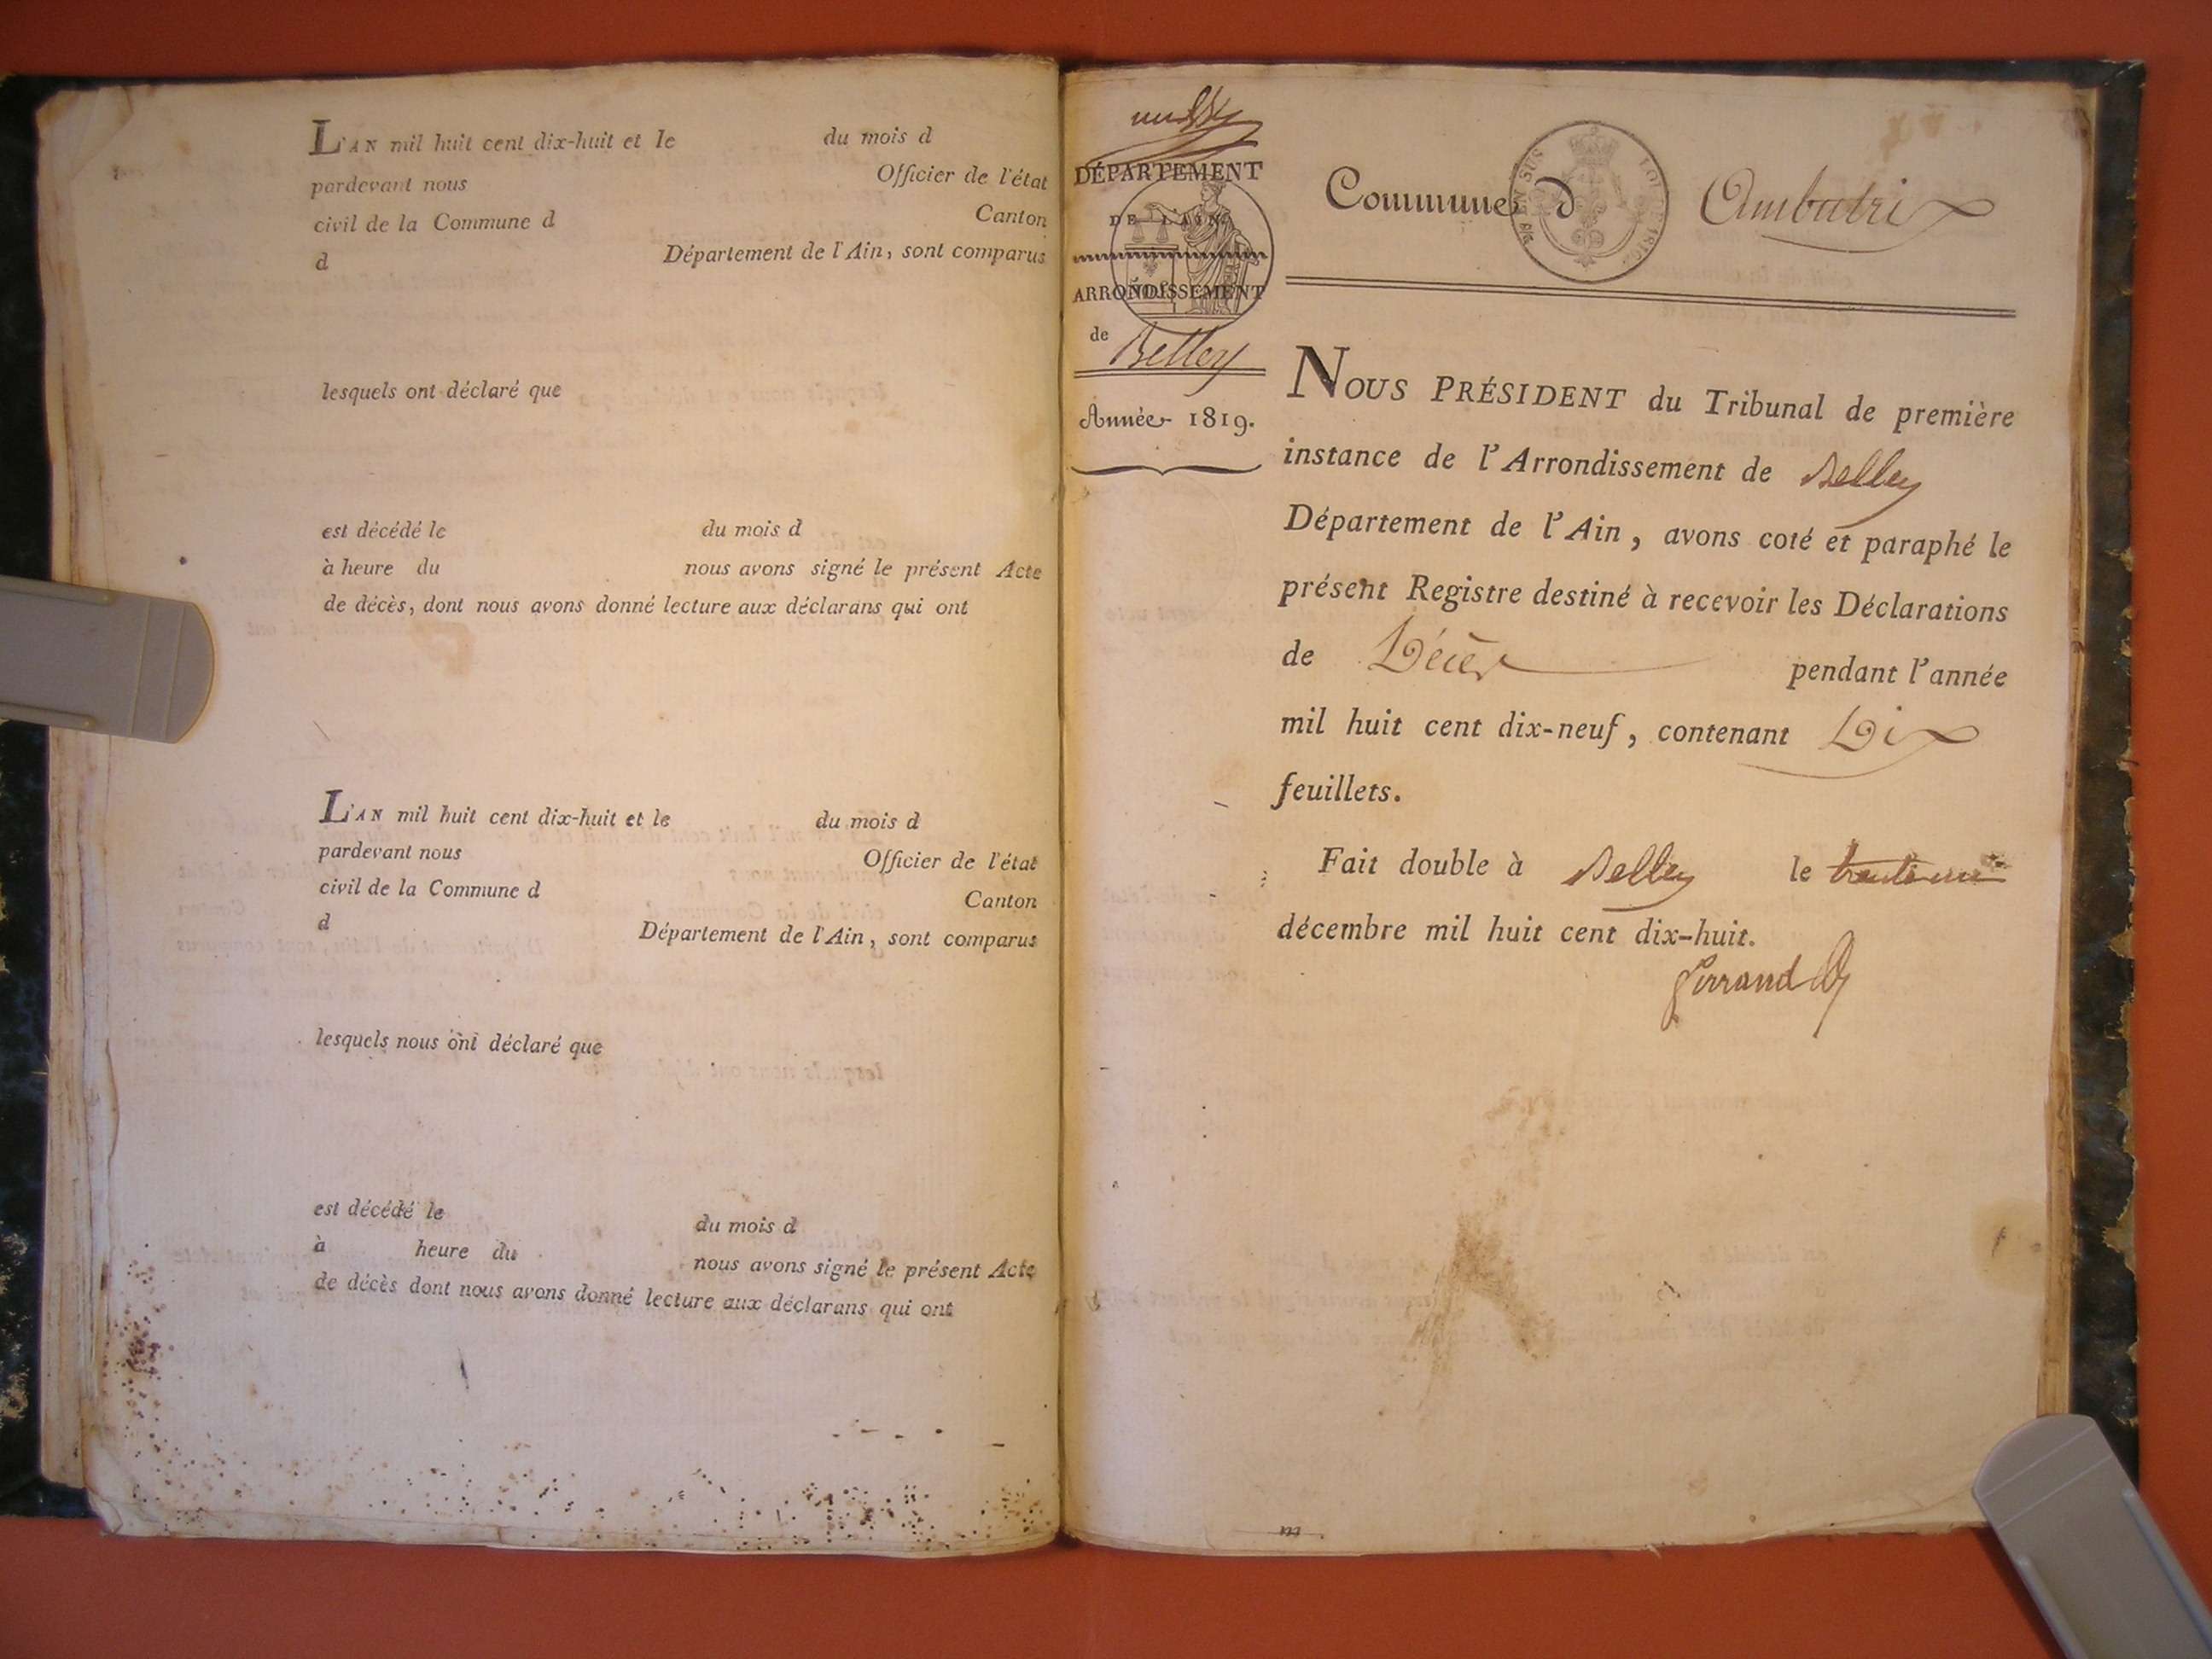 L'AN mil huit cent dix-huit et le du mois d
pardevant nous Officier de l'état
civil de la Commune d Canton
d Département de l'Ain, sont comparus
lesquels ont déclaré que
est décédé le du mois d
à heure du nous avons signé le présent Acte
de décès, dont nous avons donné lecture aux déclarans qui ont
L'AN mil huit cent dix-huit et le du mois d
pardevant nous Officier de l'état
civil de la Commune d Canton
d Département de l'Ain, sont comparus
lesquels nous ont déclaré que
est décédé le du mois d
à heure du nous avons signé le présent Acte
de décès dont nous avons donné lecture aux déclarans qui ont
DÉPARTEMENT
DE L'AIN
ARRONDISSEMENT
de Belley
Année 1819.
Commune d Ambutrix
NOUS PRÉSIDENT du Tribunal de première
instance de l'Arrondissement de Belley
Département de l'Ain, avons coté et paraphé le
présent Registre destiné à recevoir les Déclarations
de Décès pendant l'année
mil huit cent dix-neuf, contenant Dix
feuillets.
Fait double à Belley le trente un
décembre mil huit cent dix-huit.